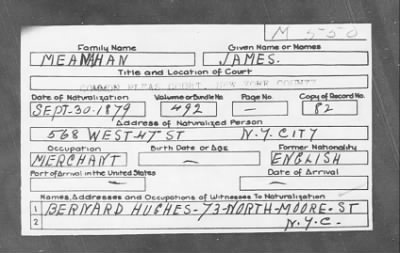 M 550
Family Name Given Name or Names
MEANHAN JAMES.
Title and Location of Court
COMMON PLEAS COURT, NEW YORK COUNTY
Date of Naturalization Volume or Bundle No. Page No. Copy of Record No.
SEPT-30-1879 492 - 82
Address of Naturalized Person
568 WEST 47 ST N.Y. CITY
Occupation Birth Date or Age Former Nationality
MERCHANT - ENGLISH
Port of Arrival in the United States Date of Arrival
- -
Names, Addresses and Occupations of Witnesses To Naturalization
1 BERNARD HUGHES-73-NORTH-MOORE-ST
2 N.Y.C.